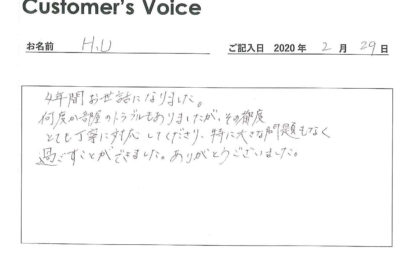 Customer's Voice
お名前 H.U ご記入日 2020 年 2 月 29 日
4年間お世話になりました。
何度か部屋のトラブルもありましたが、その都度
とても丁寧に対応してくださり、特に大きな問題もなく
過ごすことができました。ありがとうございました。